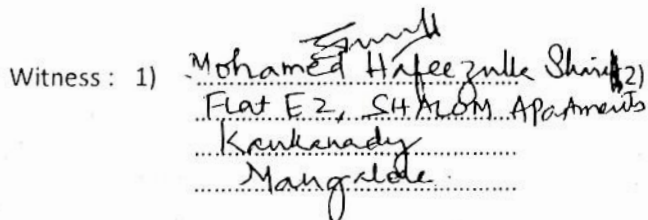 Witness : 1) Mohamed Hafeezulla Sharif 2)
Flat E2, SHALOM Apartments
Kankanady
Mangalore.